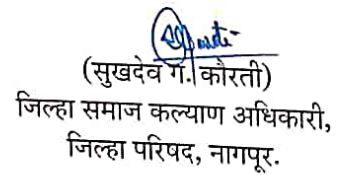 (सुखदेव ग. कौरती)
जिल्हा समाज कल्याण अधिकारी,
जिल्हा परिषद, नागपूर.